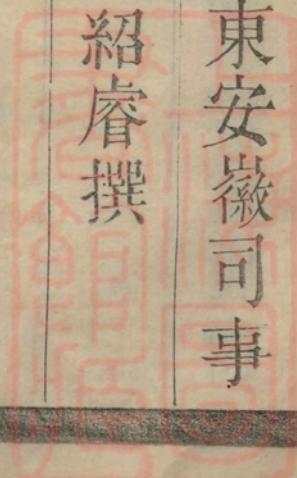 東安徽司事
紹睿撰